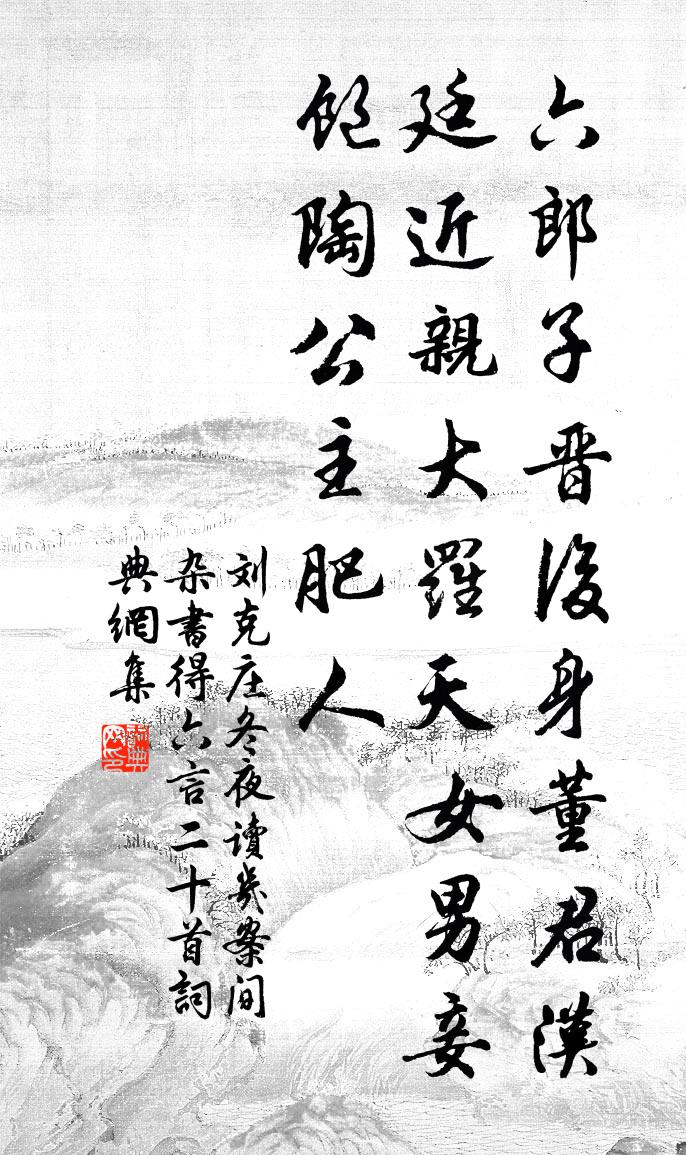 六郎子晋後身董君漢
廷近親大羅天女男妾
館陶公主胞人
刘克庄冬夜讀幾案間
杂書得六言二十首詞
典網集